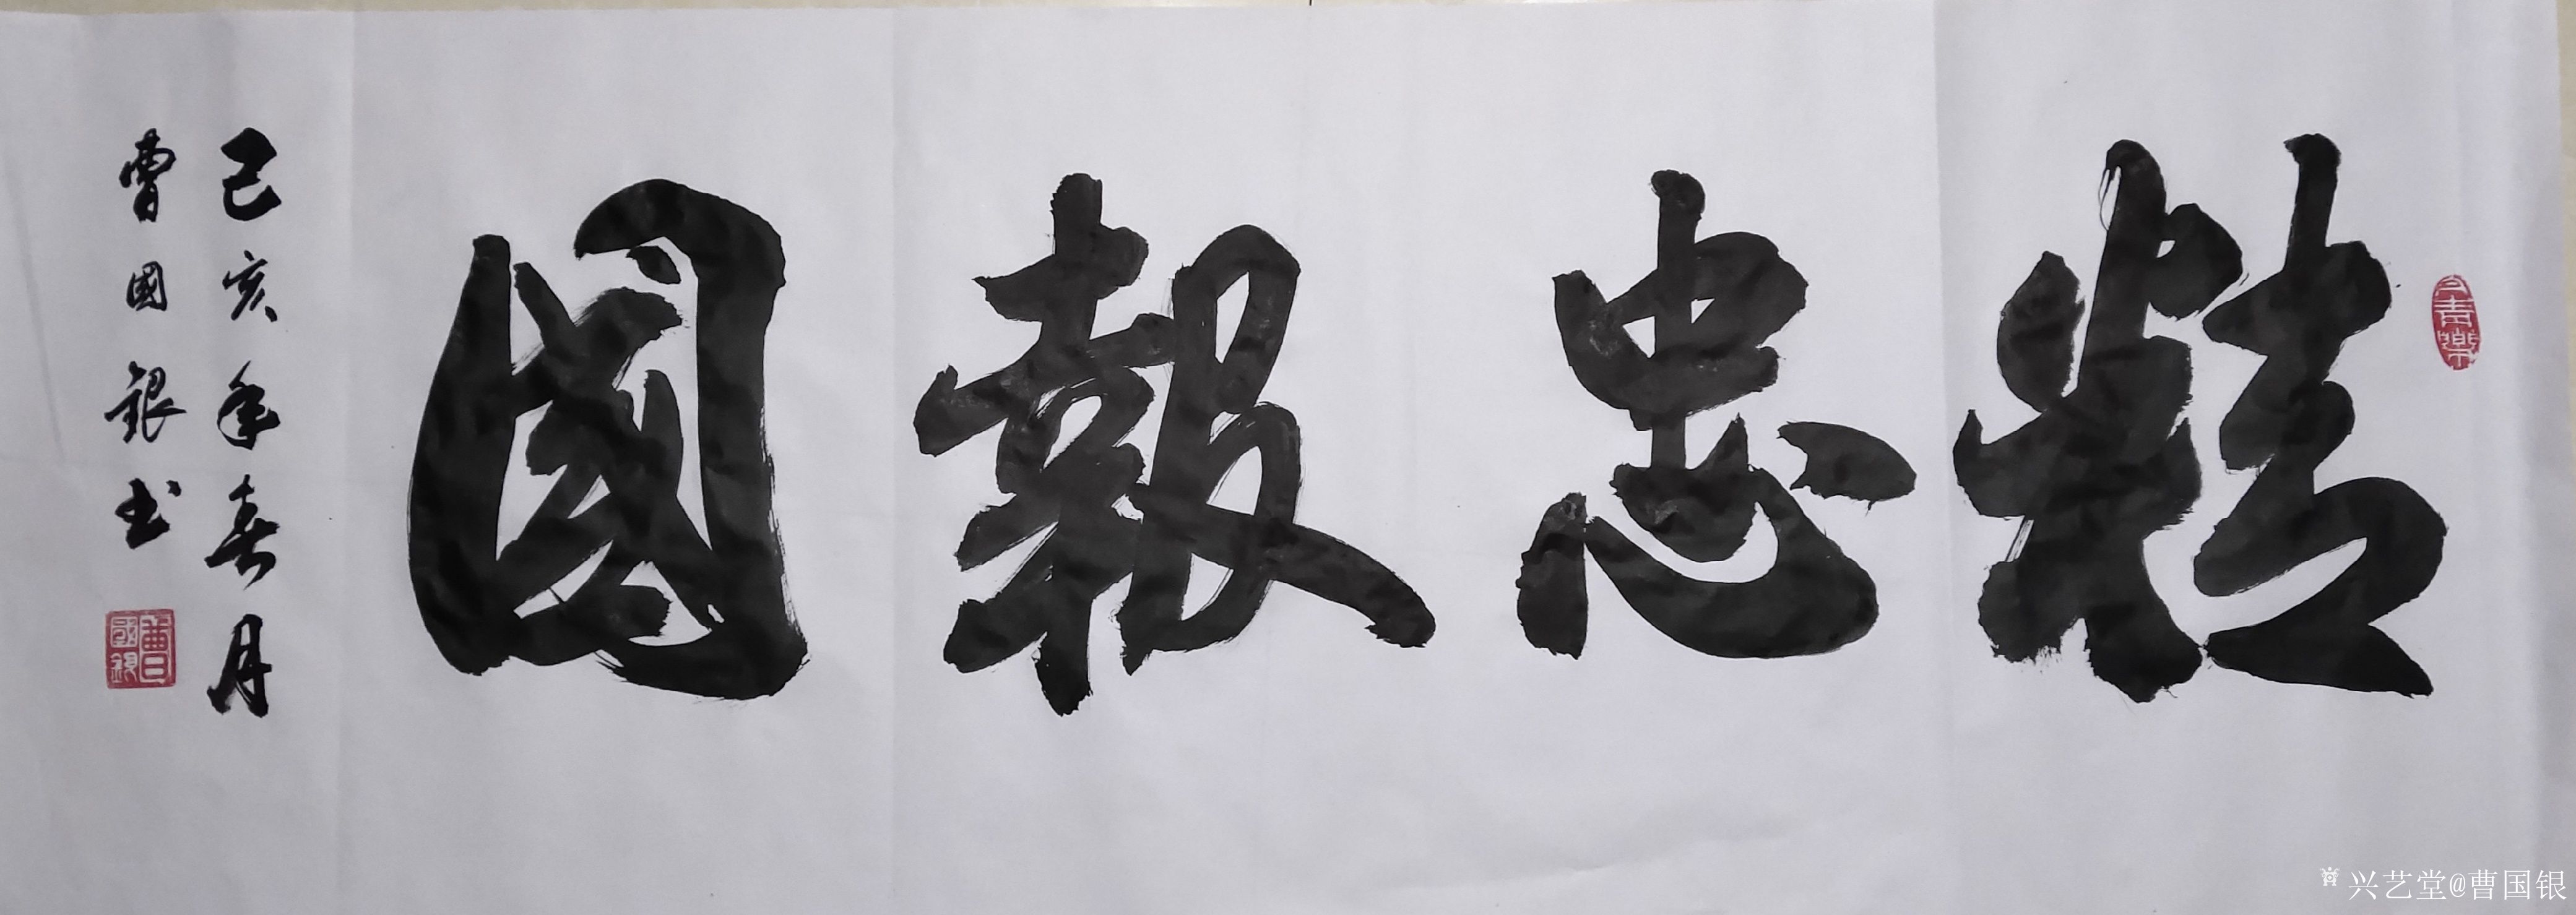 精忠報國
己亥年春月
曹國銀书
曹國銀
兴艺堂@曹国银